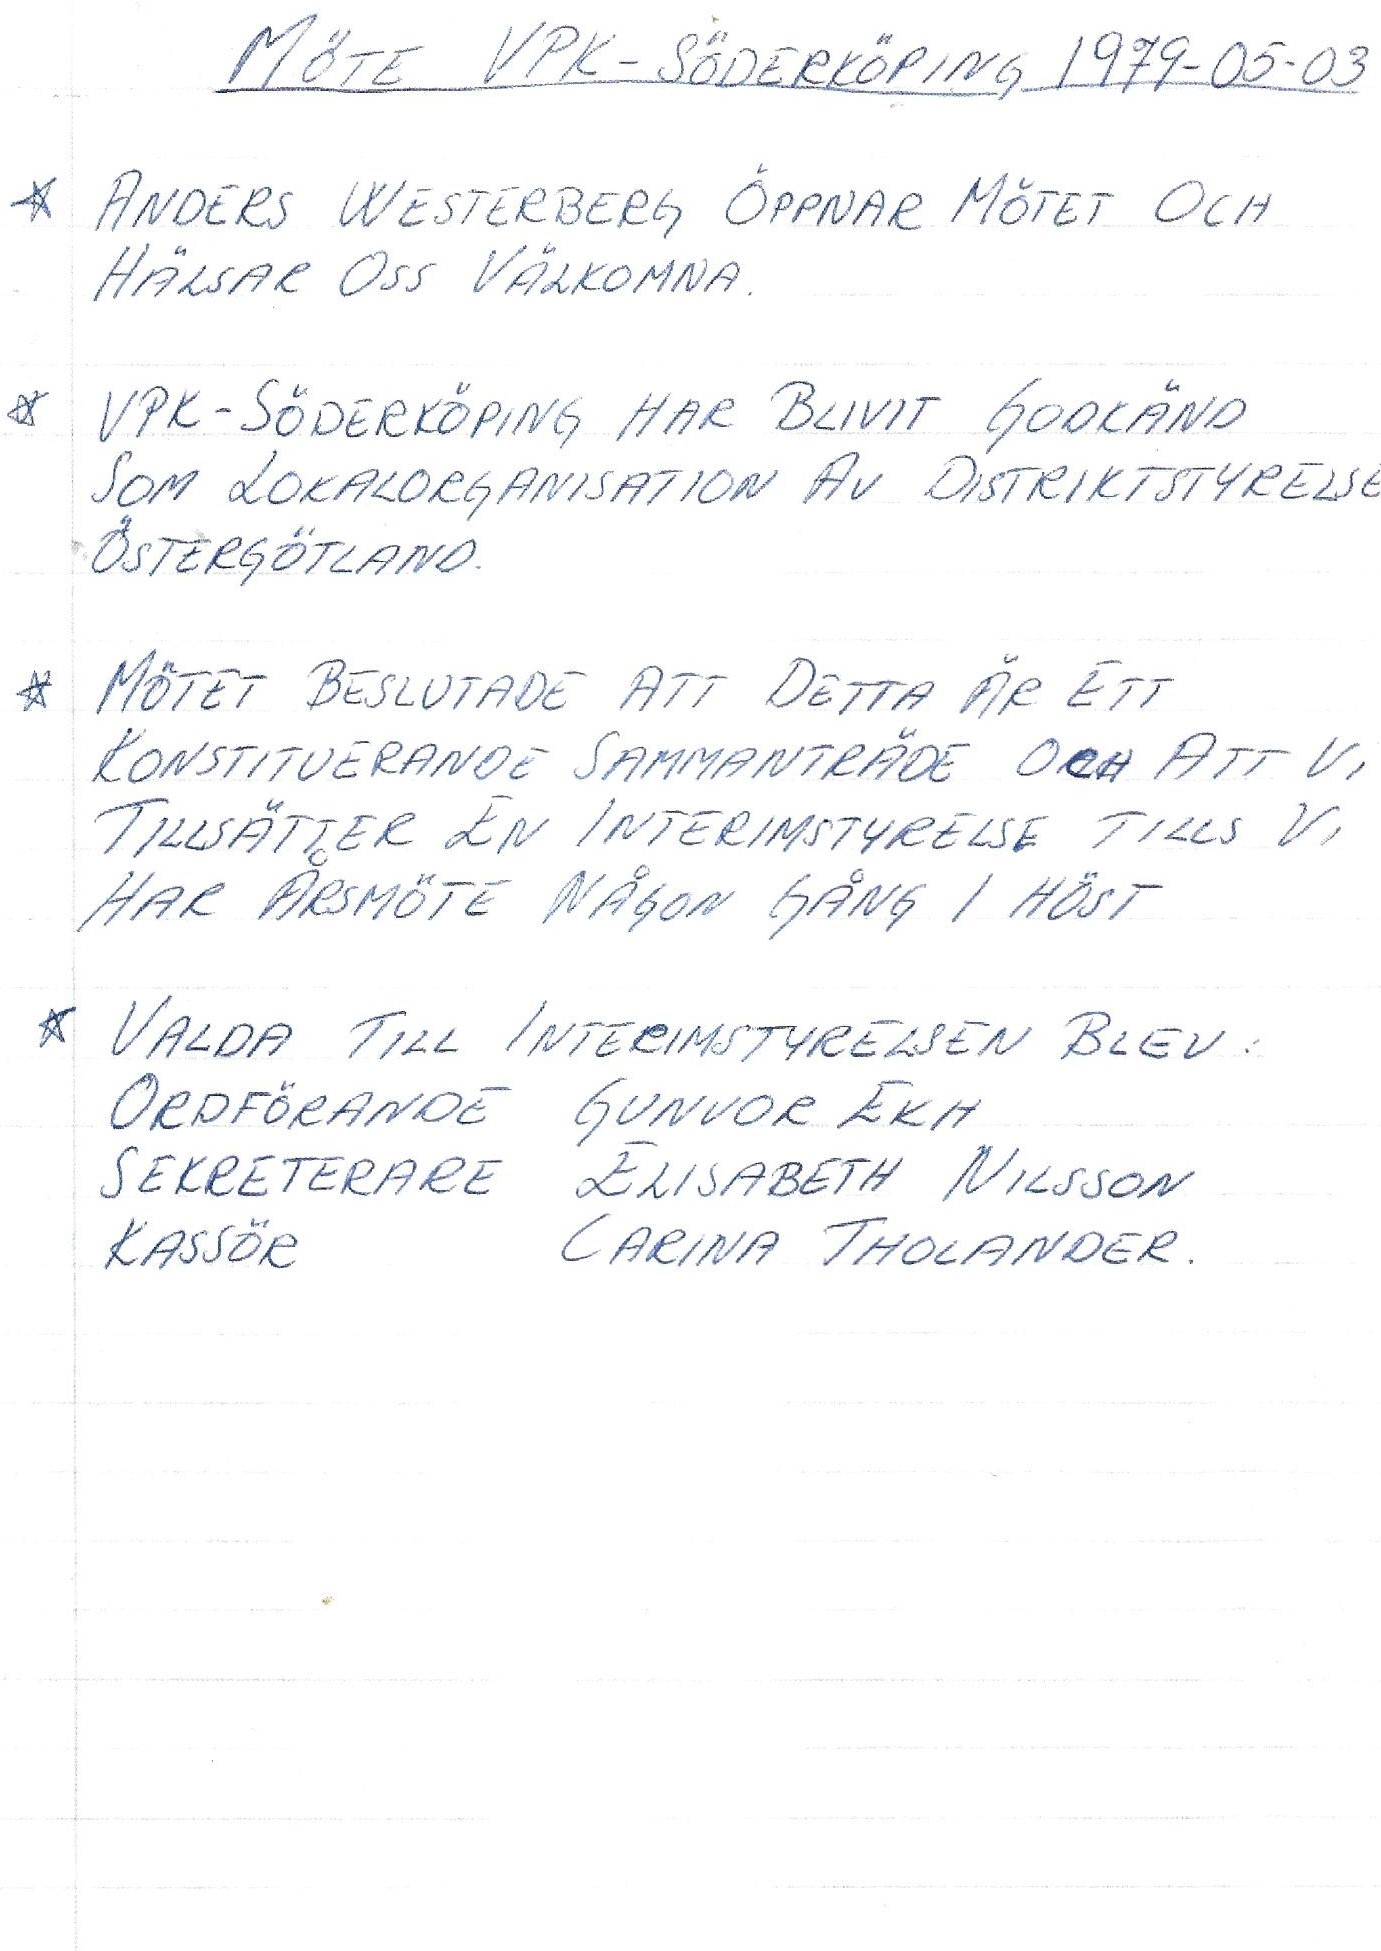 MÖTE VPK-SÖDERKÖPING 1979-05-03
* ANDERS WESTERBERG ÖPPNAR MÖTET OCH
HÄLSAR OSS VÄLKOMNA.
* VPK-SÖDERKÖPING HAR BLIVIT GODKÄND
SOM LOKALORGANISATION AV DISTRIKTSTYRELSE
ÖSTERGÖTLAND.
* MÖTET BESLUTADE ATT DETTA ÄR ETT
KONSTITUERANDE SAMMANTRÄDE OCH ATT VI
TILLSÄTTER EN INTERIMSTYRELSE TILLS VI
HAR ÅRSMÖTE NÅGON GÅNG I HÖST
* VALDA TILL INTERIMSTYRELSEN BLEV:
ORDFÖRANDE GUNVOR EKH
SEKRETERARE ELISABETH NILSSON
KASSÖR CARINA THOLANDER.